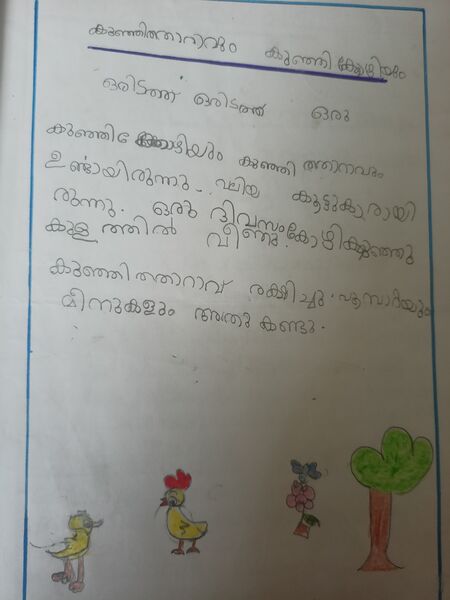 കുഞ്ഞിത്താറാവും കുഞ്ഞി കോഴിയും
ഒരിടത്ത് ഒരിടത്ത് ഒരു
കുഞ്ഞി കോഴിയും കുഞ്ഞി താറാവും
ഉണ്ടായിരുന്നു.. വലിയ കൂട്ടുകാരായി
രുന്നു. ഒരു ദിവസം കോഴികുഞ്ഞു
കുളത്തിൽ വീണു.
കുഞ്ഞി തതാറാവ് രക്ഷിച്ചു.
മീനുകളും അതു കണ്ടു.